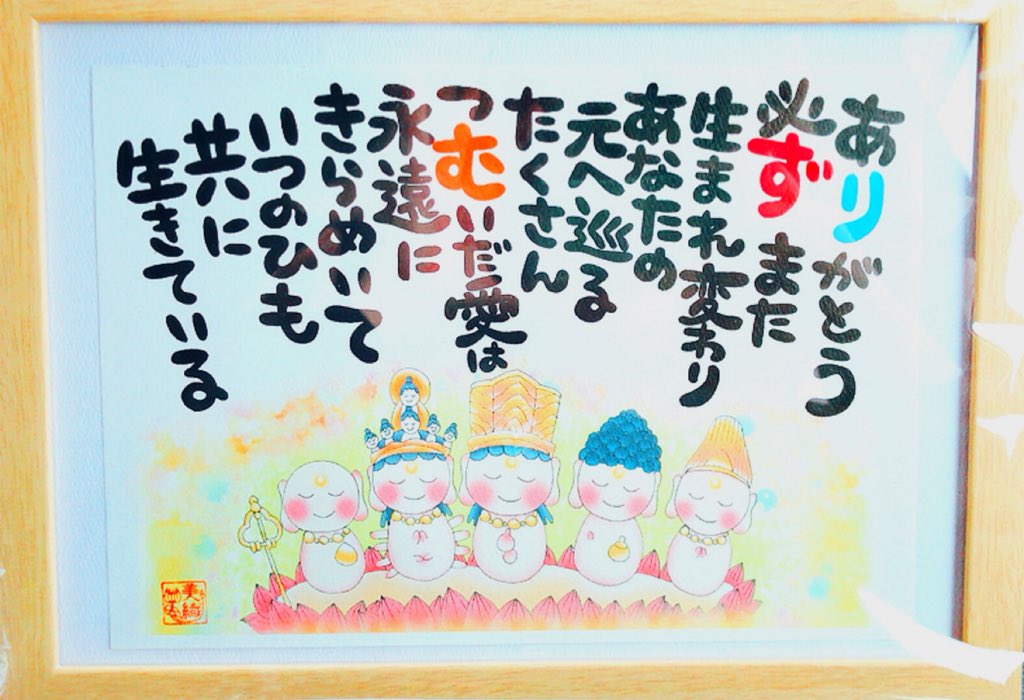 ありがとう
必ず また
生まれ変わり
あなたの
元へ巡る
たくさん
つむいだ愛は
永遠に
きらめいて
いつのひも
共に
生きている